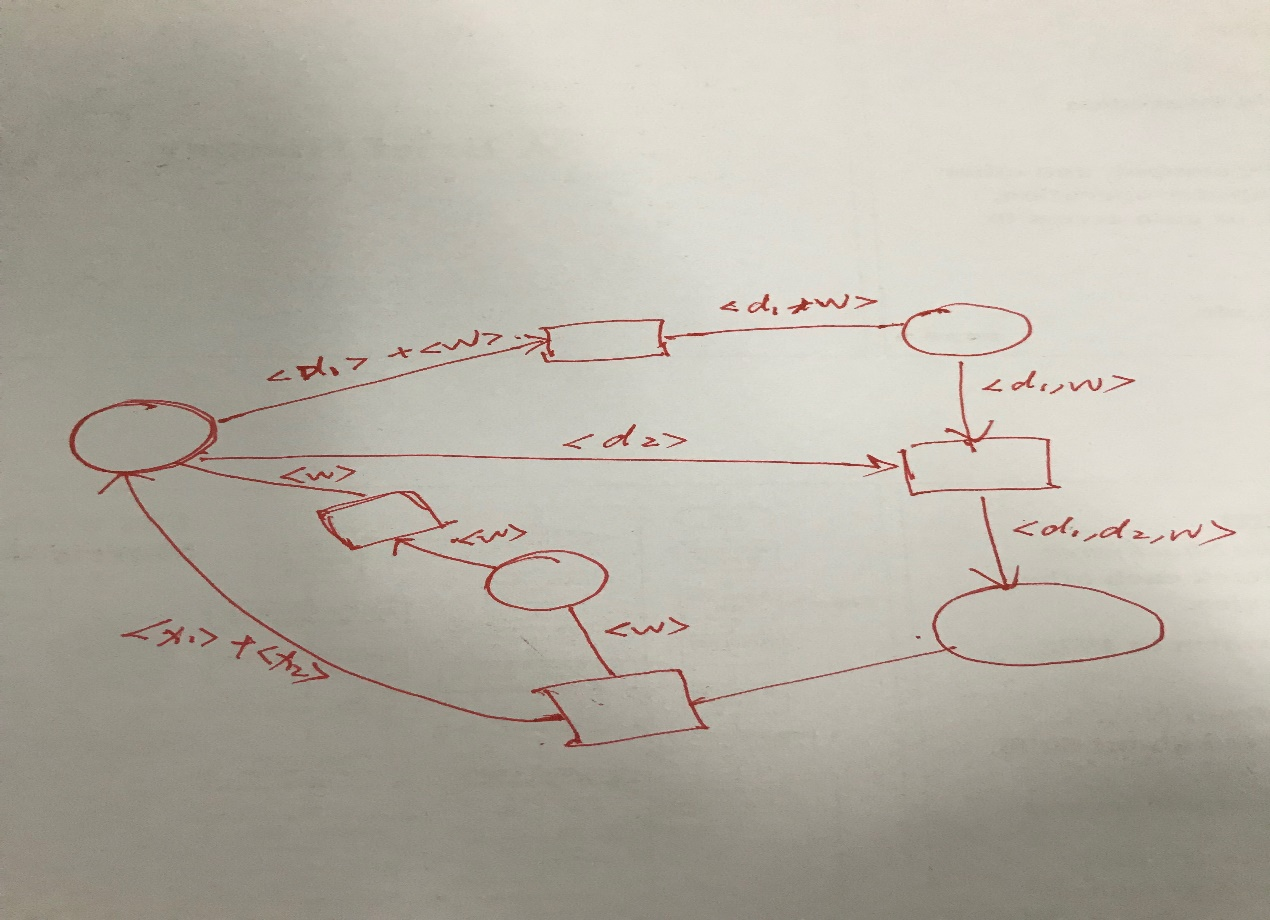 <d₁*w>
<D₁> +<w>
<d₁,w>
<d₂>
<w>
<w>
<d₁,d₂,w>
<w>
<x₁>+<x₂>